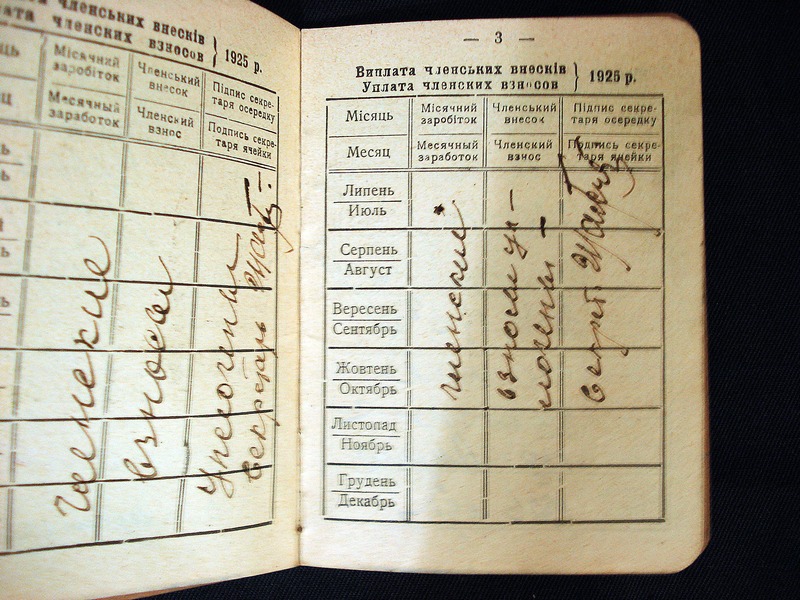 членських внесків
членских взносов } 1925 р.
Місячний заробіток
Членський внесок
Підпис секретаря осередку
Месячный заработок
Членский взнос
Подпись секретаря ячейки
членские
взносы
уплочены
секретарь
— 3 —
Виплата членських внесків
Уплата членских взносов } 1925 р.
Місяць
Місячний заробіток
Членський внесок
Підпис секретаря осередку
Месяц
Месячный заработок
Членский взнос
Подпись секретаря ячейки
Липень
Июль
Серпень
Август
Вересень
Сентябрь
Жовтень
Октябрь
Листопад
Ноябрь
Грудень
Декабрь
членские
взносы уп-
лочены
секрет.